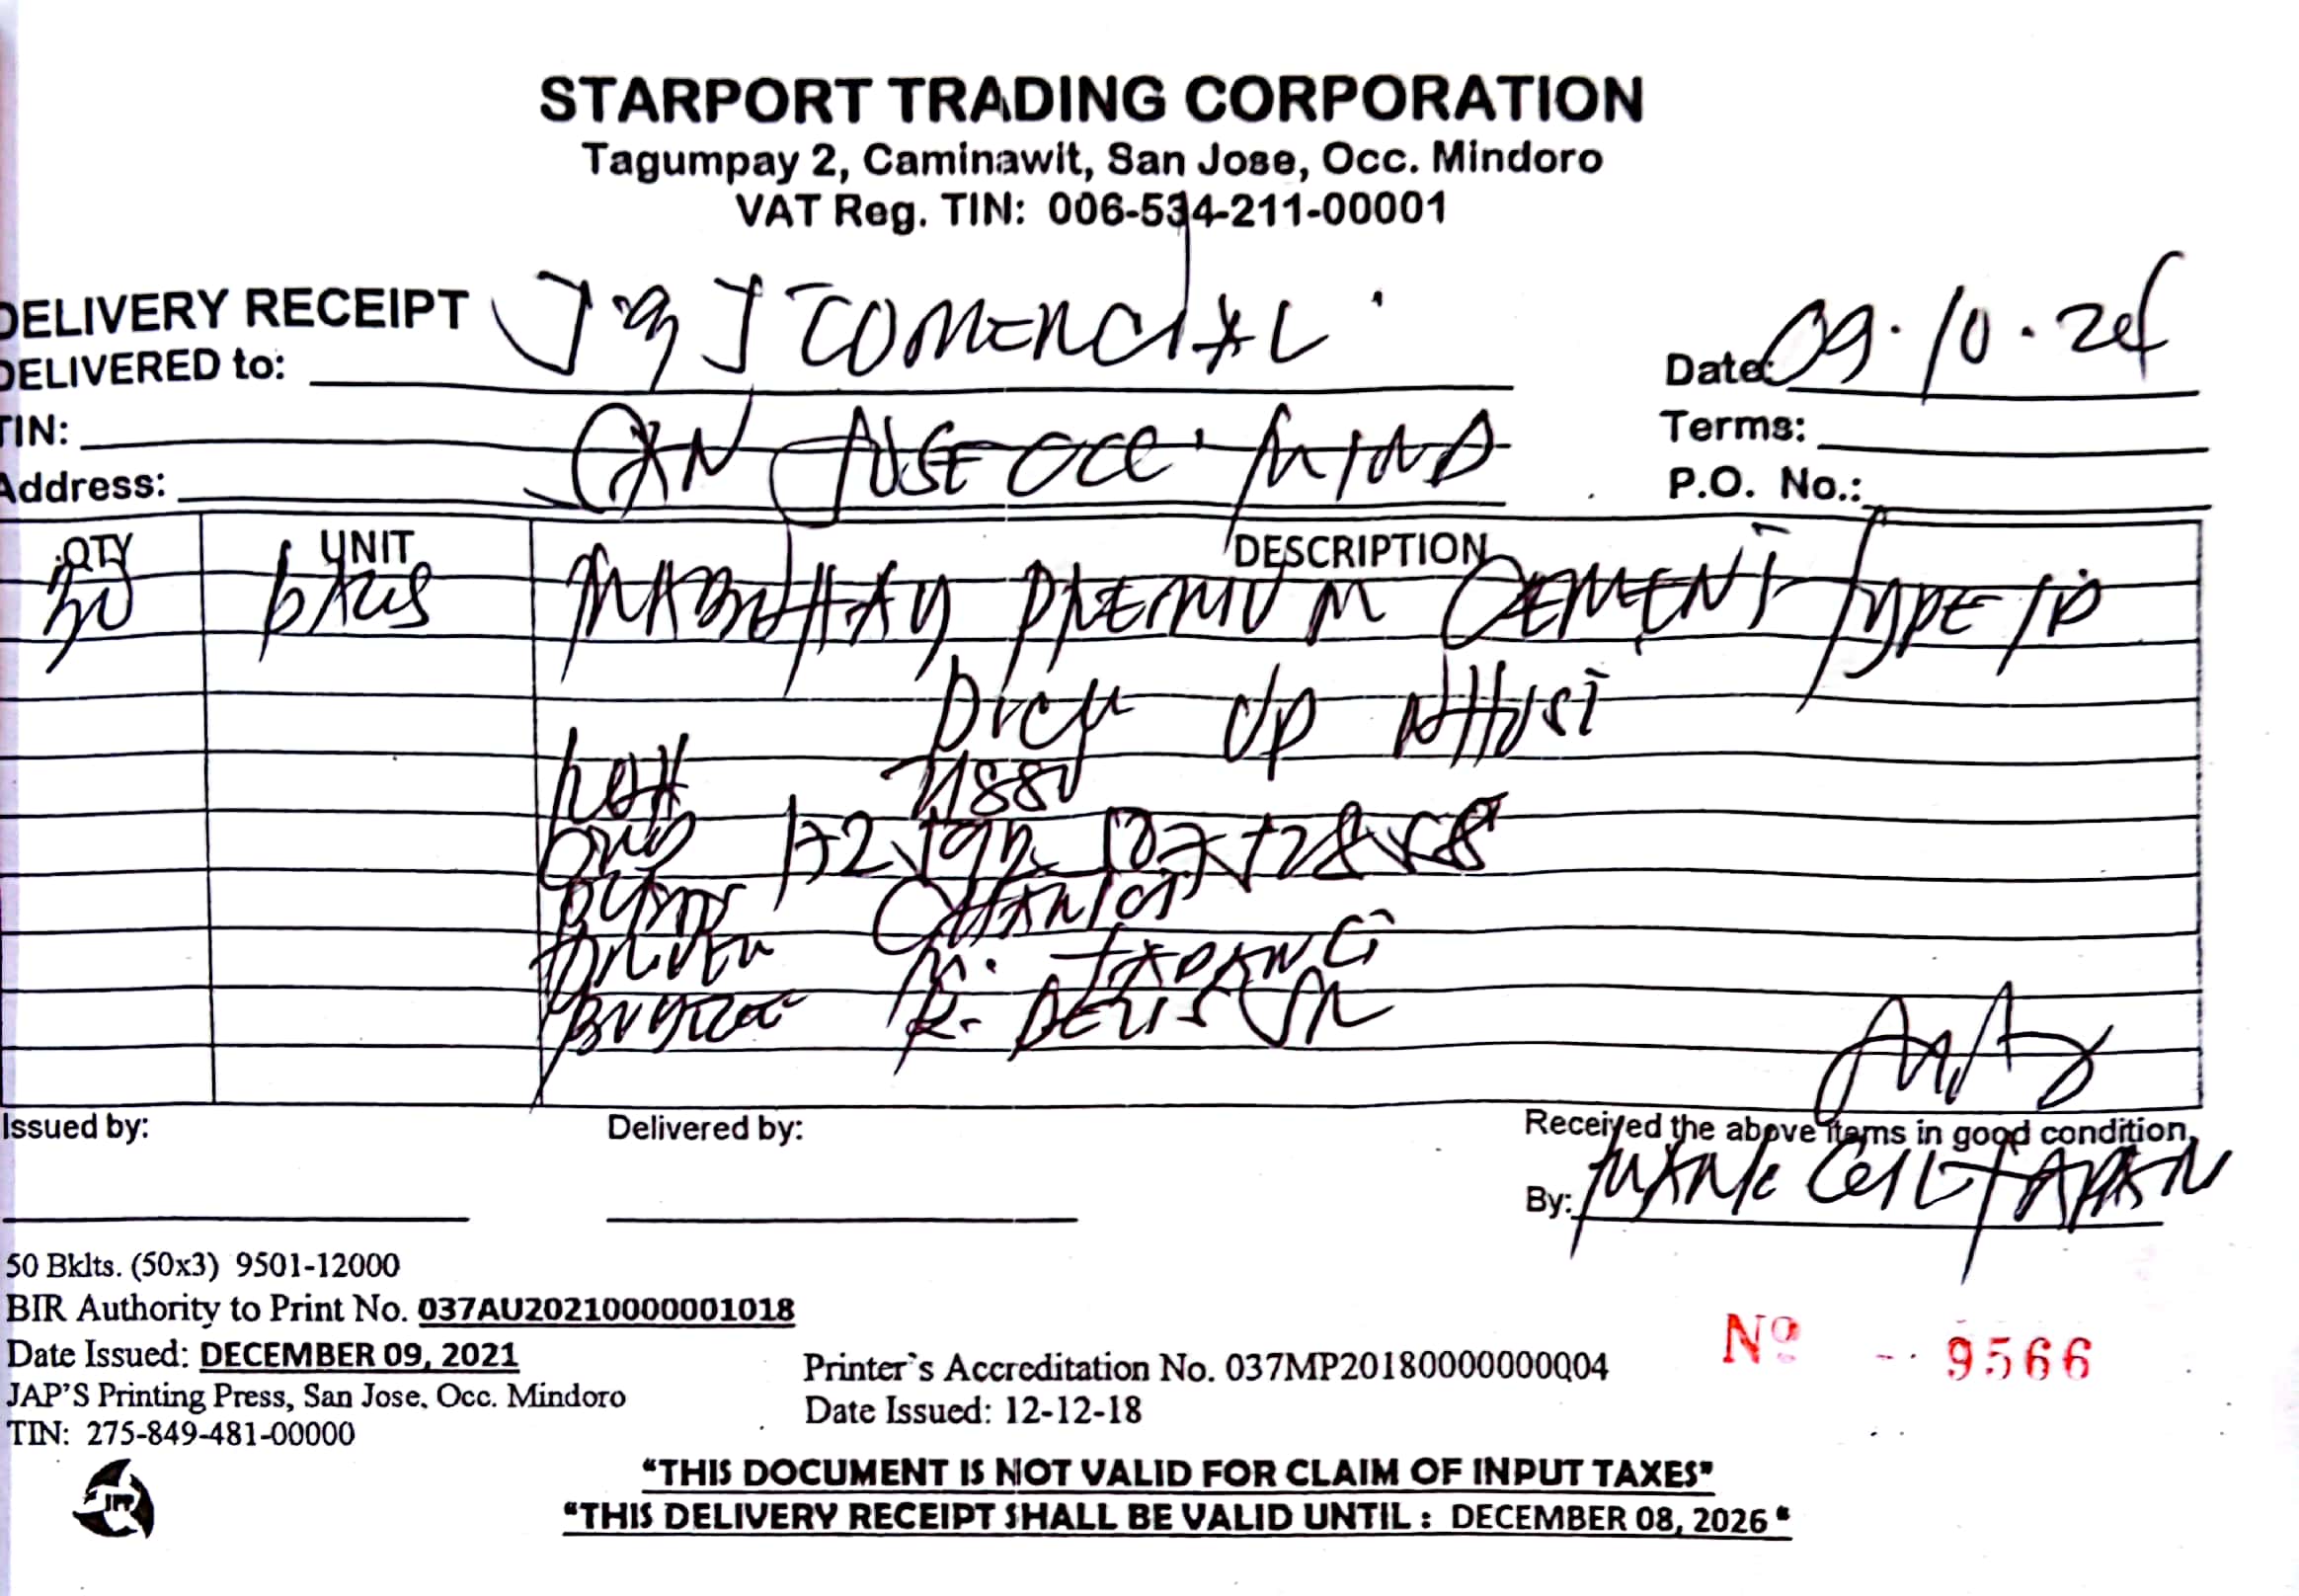 STARPORT TRADING CORPORATION
Tagumpay 2, Caminawit, San Jose, Occ. Mindoro
VAT Reg. TIN: 006-534-211-00001
DELIVERY RECEIPT
DELIVERED to: J & J COMERCIAL
Date: 09.10.24
TIN:
Terms:
Address: SAN JOSE OCC. MIND
P.O. No.:
QTY UNIT DESCRIPTION
30 BAGS MABUHAY PREMIUM CEMENT TYPE 1P
PICK UP
R. DELIS JR
Issued by:
Delivered by:
Received the above items in good condition,
By:
50 Bklts. (50x3) 9501-12000
BIR Authority to Print No. 037AU20210000001018
Date Issued: DECEMBER 09, 2021
JAP'S Printing Press, San Jose, Occ. Mindoro
TIN: 275-849-481-00000
Printer's Accreditation No. 037MP20180000000004
Date Issued: 12-12-18
Nº 9566
JPP
"THIS DOCUMENT IS NOT VALID FOR CLAIM OF INPUT TAXES"
"THIS DELIVERY RECEIPT SHALL BE VALID UNTIL : DECEMBER 08, 2026"